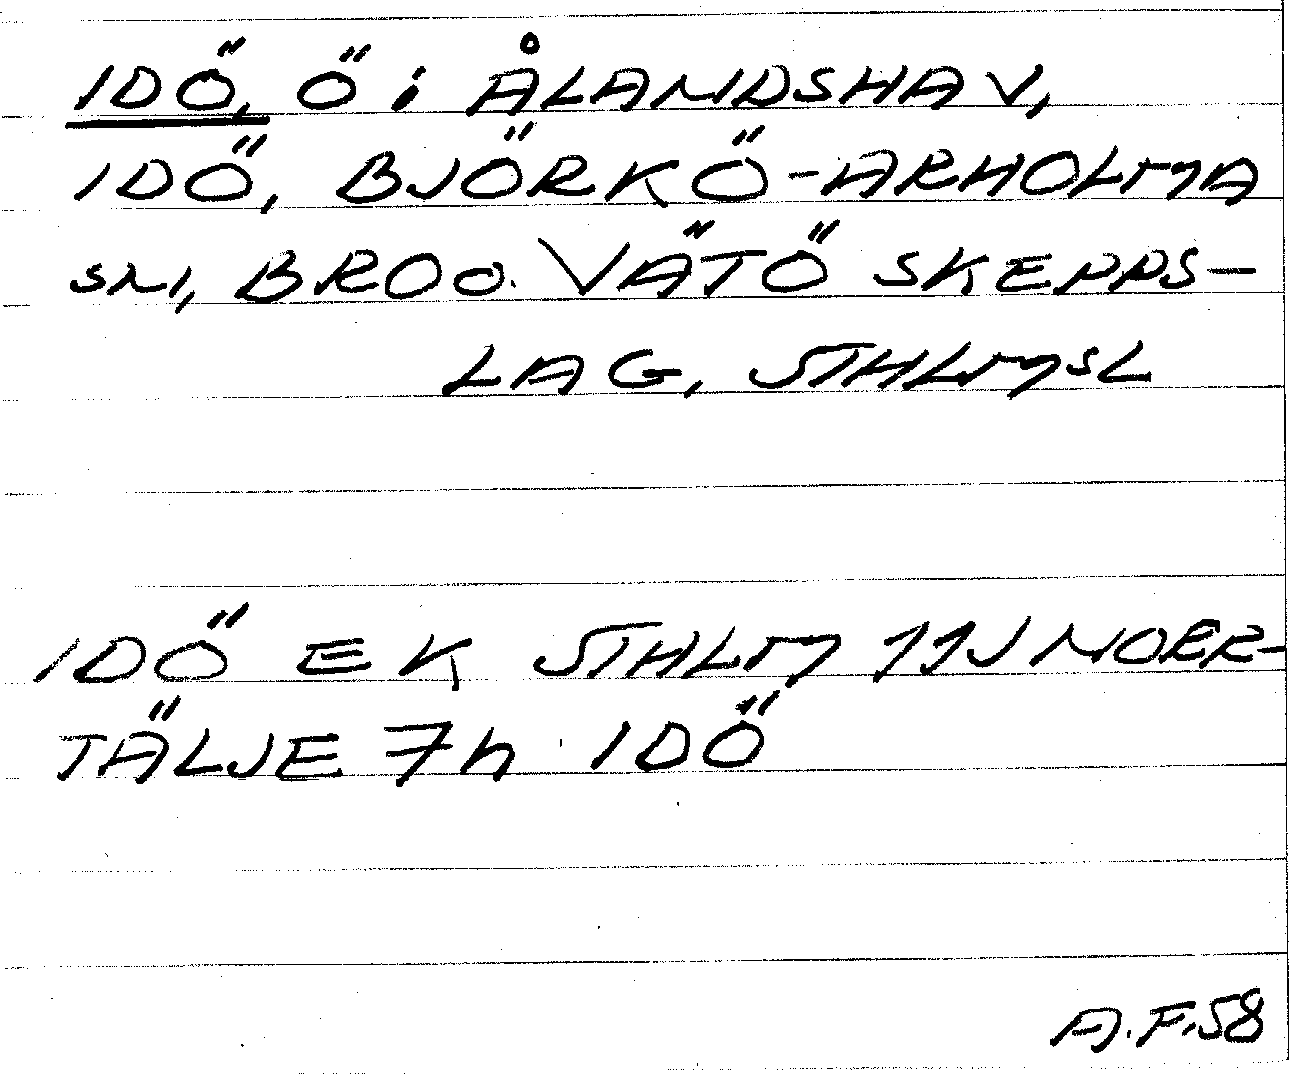 IDÖ, Ö i ÅLANDSHAV,
IDÖ, BJÖRKÖ-ARHOLMA
SN, BRO o. VÄTÖ SKEPPS-
LAG, STHLMSL
IDÖ EK STHLM 11J NORR-
TÄLJE 7h IDÖ
A.F.58